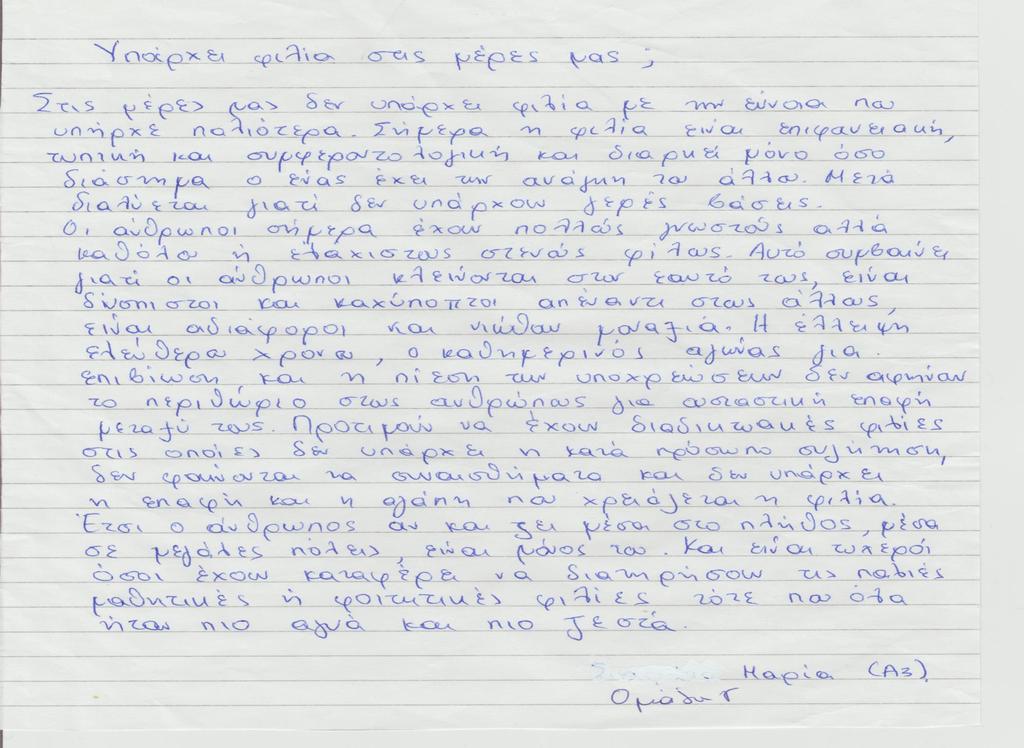 Υπάρχει φιλία στις μέρες μας;
Στις μέρες μας δεν υπάρχει φιλία με την έννοια που
υπήρχε παλιότερα. Σήμερα η φιλία είναι επιφανειακή,
τυπική και συμφεροντολογική και διαρκεί μόνο όσο
διάστημα ο ένας έχει την ανάγκη του άλλου. Μετά
διαλύεται γιατί δεν υπάρχουν γερές βάσεις.
Οι άνθρωποι σήμερα έχουν πολλούς γνωστούς αλλά
καθόλου ή ελάχιστους στενούς φίλους. Αυτό συμβαίνει
γιατί οι άνθρωποι κλείνονται στον εαυτό τους, είναι
δύσπιστοι και καχύποπτοι απέναντι στους άλλους,
είναι αδιάφοροι και νιώθουν μοναξιά. Η έλλειψη
ελεύθερου χρόνου, ο καθημερινός αγώνας για
επιβίωση, και η πίεση των υποχρεώσεων δεν αφήνουν
το περιθώριο στους ανθρώπους για ουσιαστική επαφή
μεταξύ τους. Προτιμούν να έχουν διαδικτυακές φιλίες
στις οποίες δεν υπάρχει η κατά πρόσωπο συζήτηση,
δεν φαίνονται τα συναισθήματα και δεν υπάρχει
η επαφή και η αγάπη που χρειάζεται η φιλία.
Έτσι ο άνθρωπος αν και ζει μέσα στο πλήθος, μέσα
σε μεγάλες πόλεις, είναι μόνος του. Και είναι τυχεροί
όσοι έχουν καταφέρει να διατηρήσουν τις παλιές
μαθητικές ή φοιτητικές φιλίες τότε που όλα
ήταν πιο αγνά και πιο ζεστά.
Μαρία (Α3)
Ομάδα Γ